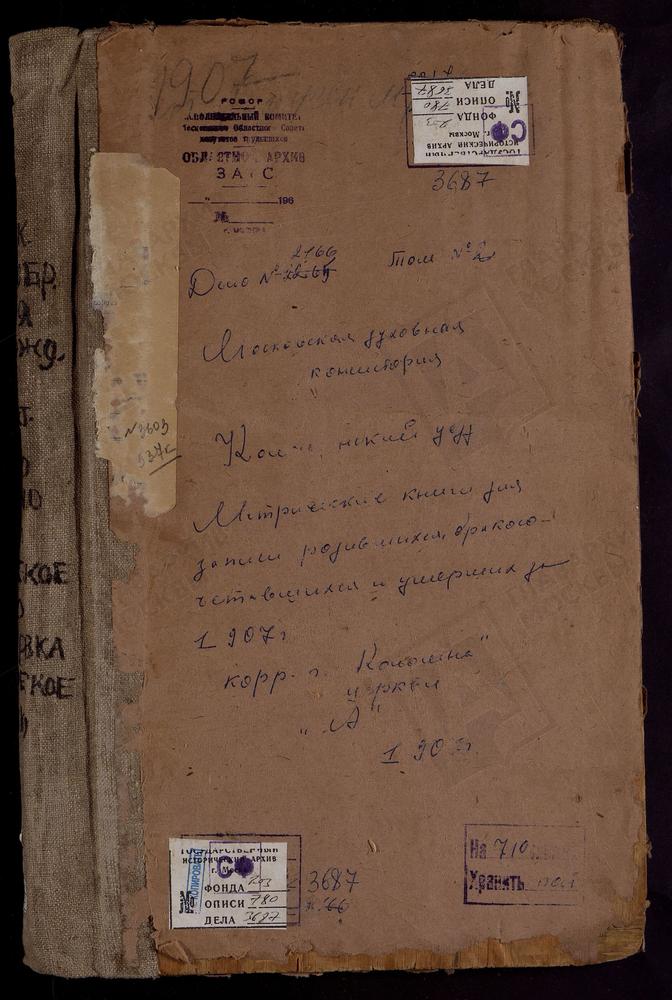 1907
РСФСР
ИСПОЛНИТЕЛЬНЫЙ КОМИТЕТ
Московского Областного Совета
депутатов трудящихся
ОБЛАСТНОЙ АРХИВ
ЗАГС
196
№
г. МОСКВА
ГОСУДАРСТВЕННЫЙ
ИСТОРИЧЕСКИЙ АРХИВ
г. Москвы
СФ
ФОНДА 203
№ ОПИСИ 780
ДЕЛА 3687
3687
2166
Дело № Том № 2
Московская духовная
консистория
№3603
Коломенский уезд
Метрические книги для
записи родившихся, бракосо-
четавшихся и умерших за
1907 г
корр. г. Коломна"
церкви
"А"
1907 г.
ГОСУДАРСТВЕННЫЙ
ИСТОРИЧЕСКИЙ АРХИВ
г. Москвы
СФ
ФОНДА 203
№ ОПИСИ 780
ДЕЛА 3687
3687
На 710
Хранить пост
БР.
ЖД.
СКОЕ
ОВКА
СКОЕ